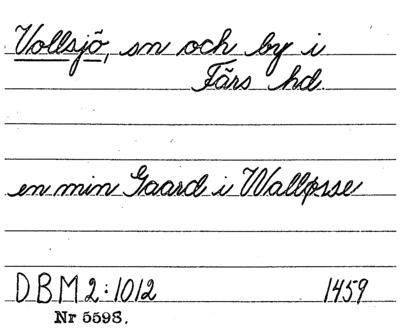 Vollsjö, sn och by i
Färs hd.
en min Gaard i Walløsse
DBM 2:1012 1459
Nr 5598.